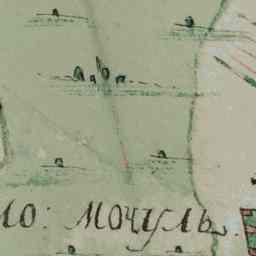 ло: мочулъ.